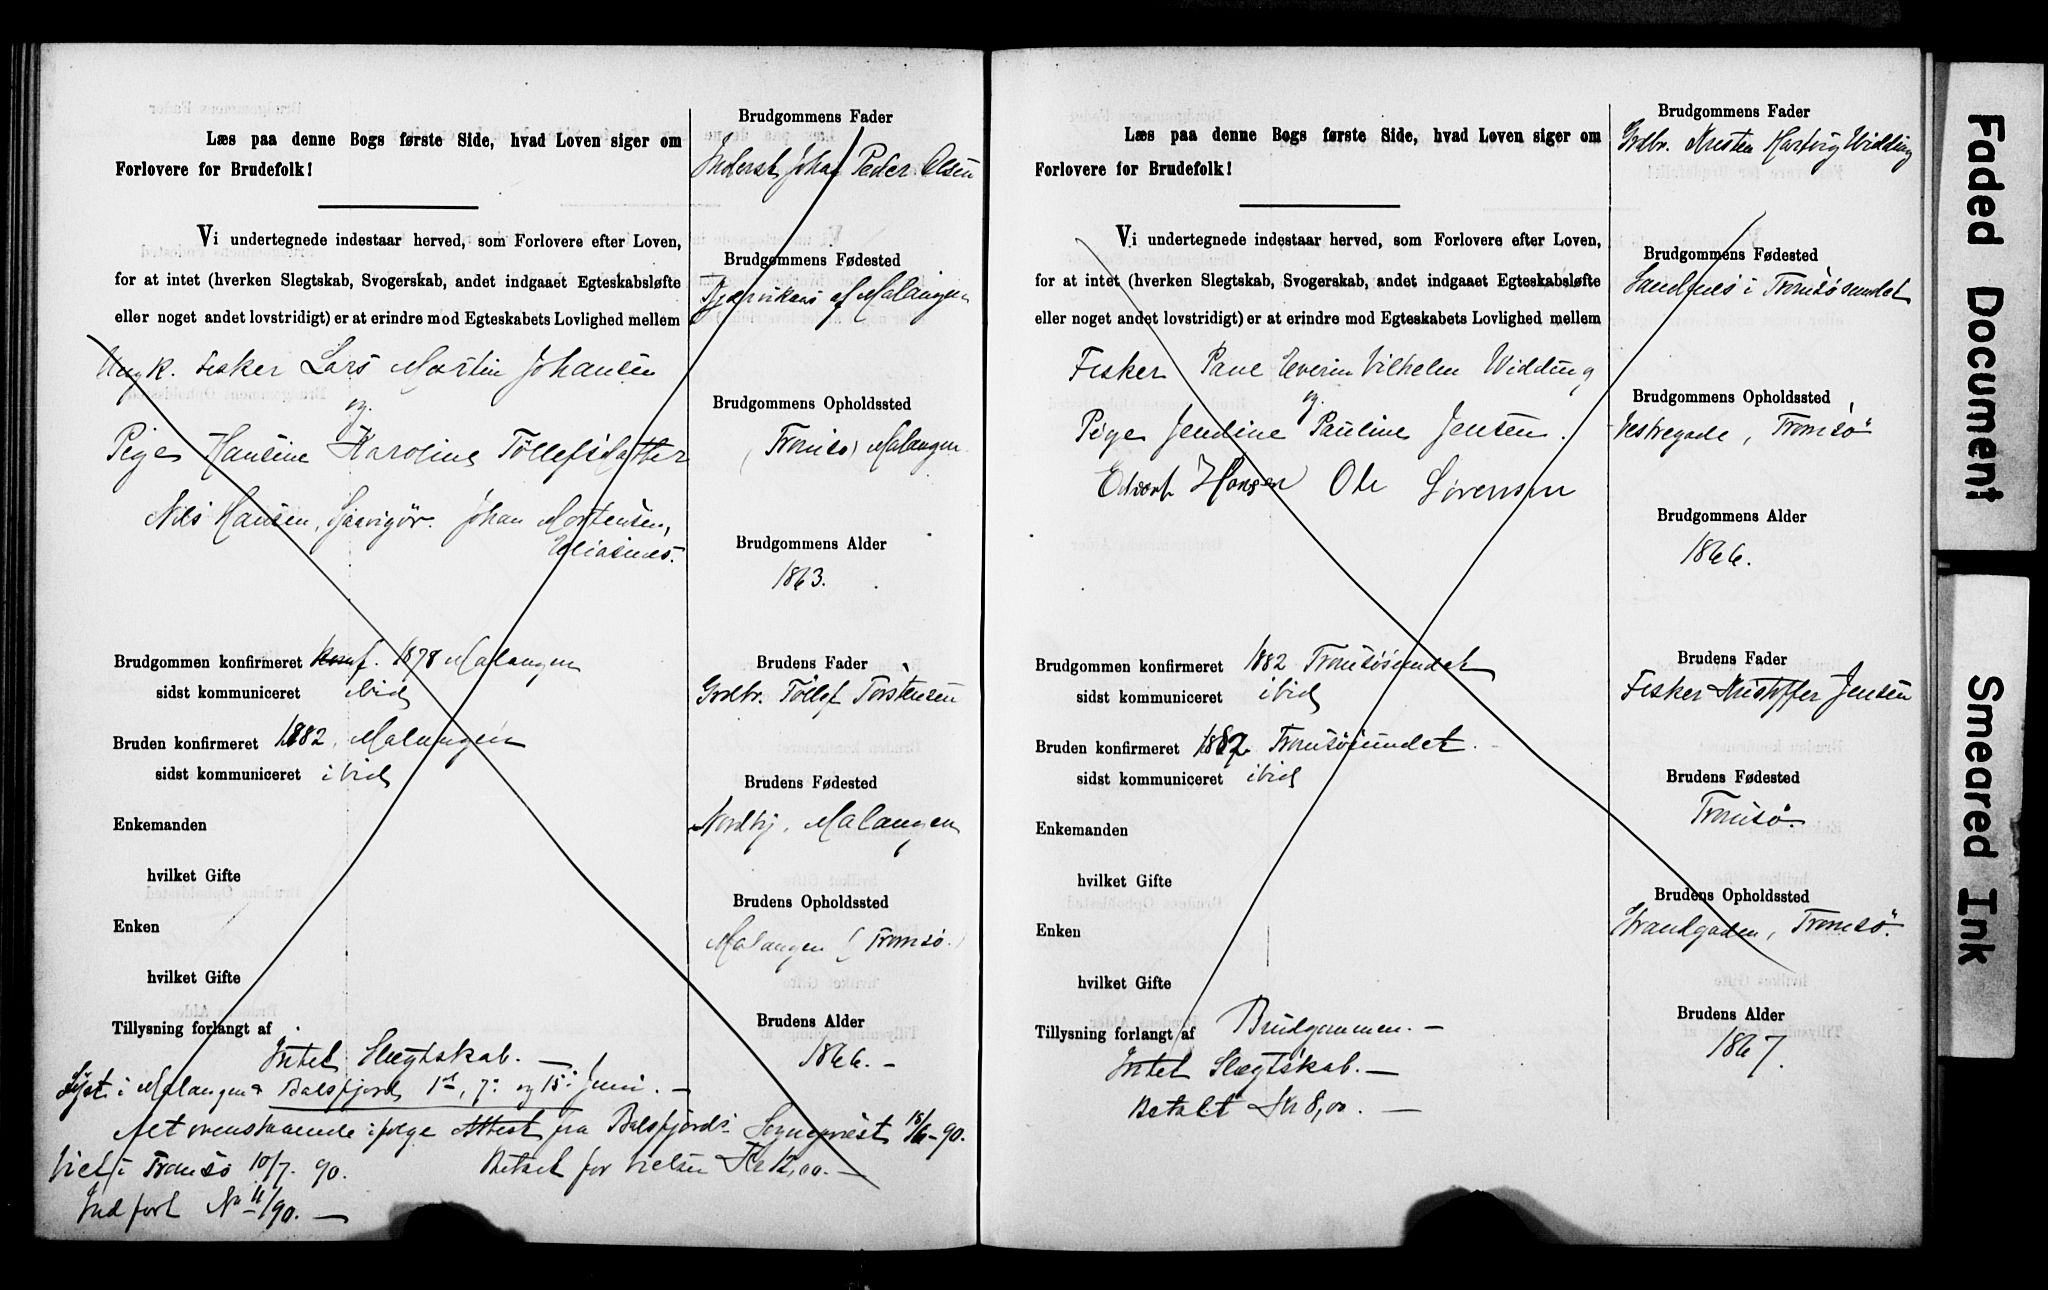 Læs paa denne Bogs første Side, hvad Loven siger om
Forlovere for Brudefolk!
Vi undertegnede indestaar herved, som Forlovere efter Loven,
for at intet (hverken Slegtskab, Svogerskab, andet indgaaet Egteskabsløfte
eller noget andet lovstridigt) er at erindre mod Egteskabets Lovlighed mellem
Ungk. Fisker Lars Martin Johansen
og
Pige Hansine Karoline Tøllefsdatter
Nils Hansen, Johan Mortensen,
Brudgommen konfirmeret Konf. 1878 Malangen
sidst kommuniceret ibid
Bruden konfirmeret 1882, Malangen
sidst kommuniceret ibid
Enkemanden
hvilket Gifte
Enken
hvilket Gifte
Tillysning forlangt af
Intet Slægtskab. —
Lyst i Malangen & Balsfjord 1ste, 7de og 15de Juni. —
Alt ovenstaaende ifølge Attest fra Balsfjords Sognepræst 18/6-90.
Viet i Tromsø 10/7. 90. Betalt for Vielsen Kr 12,00. —
Indført No 11/90. —
Brudgommens Fader
Inderst Johan Peder Olsen
Brudgommens Fødested
af Malangen
Brudgommens Opholdssted
(Tromsø) Malangen
Brudgommens Alder
1863.
Brudens Fader
Grdbr. Tøllef Torstensen
Brudens Fødested
Nordby, Malangen
Brudens Opholdssted
Malangen (Tromsø.)
Brudens Alder
1866. —
Læs paa denne Bogs første Side, hvad Loven siger om
Forlovere for Brudefolk!
Vi undertegnede indestaar herved, som Forlovere efter Loven,
for at intet (hverken Slegtskab, Svogerskab, andet indgaaet Egteskabsløfte
eller noget andet lovstridigt) er at erindre mod Egteskabets Lovlighed mellem
Fisker Paul Everin Vilhelm Widding
og
Pige Jendine Pauline Jensen.
Edvart Hansen Ole Sørensen
Brudgommen konfirmeret 1882 Tromsøsundet
sidst kommuniceret ibid
Bruden konfirmeret 1882 Tromsøsundet.
sidst kommuniceret ibid
Enkemanden
hvilket Gifte
Enken
hvilket Gifte
Tillysning forlangt af Brudgommen. —
Intet Slægtskab. —
Betalt Kr 8,00. —
Brudgommens Fader
Grdbr. Kristen Hartvig Widding
Brudgommens Fødested
Sandnes i Tromsøsundet
Brudgommens Opholdssted
Vestregade, Tromsø
Brudgommens Alder
1866.
Brudens Fader
Fisker Kristoffer Jensen
Brudens Fødested
Tromsø.
Brudens Opholdssted
Strandgaden, Tromsø.
Brudens Alder
1867.
Faded Document
Smeared Ink